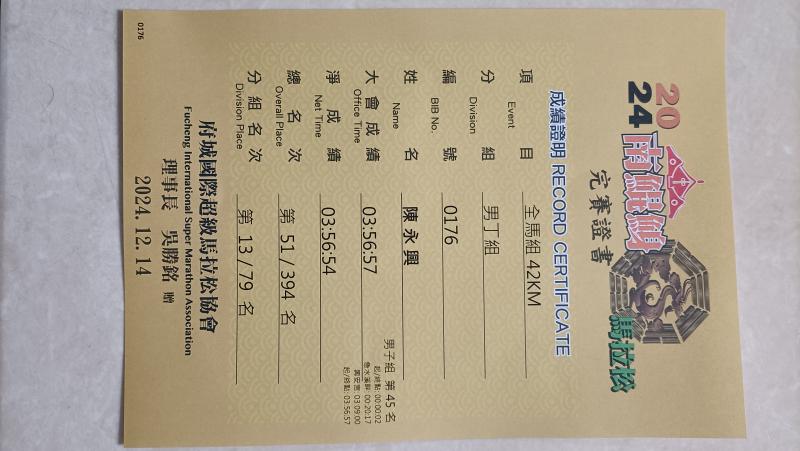 2024 南鯤鯓 馬拉松
完賽證書
成績證明 RECORD CERTIFICATE
項目 全馬組 42KM
Event
分組 男丁組
Division
編號 0176
BIB No.
姓名 陳永興
Name
男子組 第 45 名
大會成績 03:56:57
Office Time
起/終點: 00:00:02
急水溪畔: 00:20:17
興安宮: 03:09:00
起/終點: 03:56:57
淨成績 03:56:54
Net Time
總名次 第 51 / 394 名
Overall Place
分組名次 第 13 / 79 名
Division Place
府城國際超級馬拉松協會
Fucheng International Super Marathon Association
理事長 吳勝銘 贈
2024. 12. 14
0176